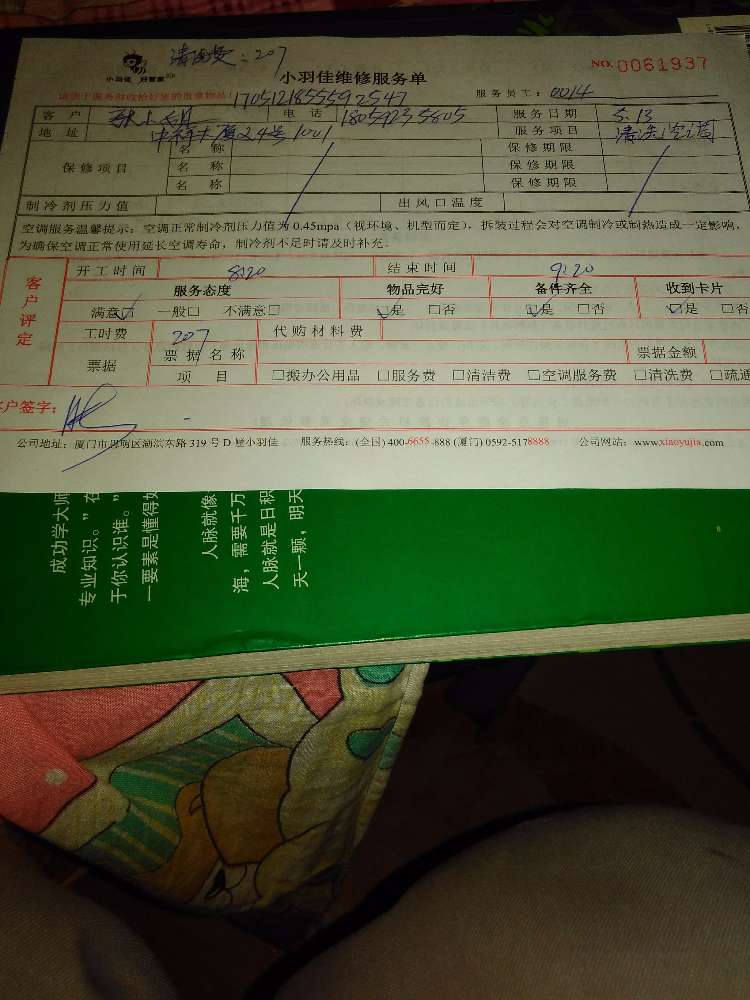 清洗费：207
小羽佳 好管家
小羽佳维修服务单
NO. 0061937
请您于服务师收拾好您的贵重物品！
170512185559 2547
服务员工：0014
客 户
电 话 18059235805
服务日期 5.13
地 址 中科大厦24号1001
服务项目 清洗空调
保修项目
名 称 保修期限
名 称 保修期限
名 称 保修期限
制冷剂压力值 出风口温度
空调服务温馨提示：空调正常制冷剂压力值为0.45mpa（视环境、机型而定），拆装过程会对空调制冷或制热造成一定影响，
为确保空调正常使用延长空调寿命，制冷剂不足时请及时补充。
客户评定
开工时间 8:20 结束时间 9:20
服务态度 物品完好 备件齐全 收到卡片
满意☑ 一般□ 不满意□ ☑是 □否 ☑是 □否 ☑是 □否
工时费 207 代购材料费
票据 票据名称 票据金额
项 目 □搬办公用品 □服务费 □清洁费 □空调服务费 □清洗费 □疏通
客户签字：
公司地址：厦门市思明区湖滨东路319号D座小羽佳 服务热线：(全国) 400-6655-888 (厦门) 0592-5178888 公司网站：www.xiaoyujia.com
成功学大师
专业知识。”在
于你认识谁。”
一要素是懂得如
人脉就像
海，需要千万
人脉就是日积
天一颗，明天